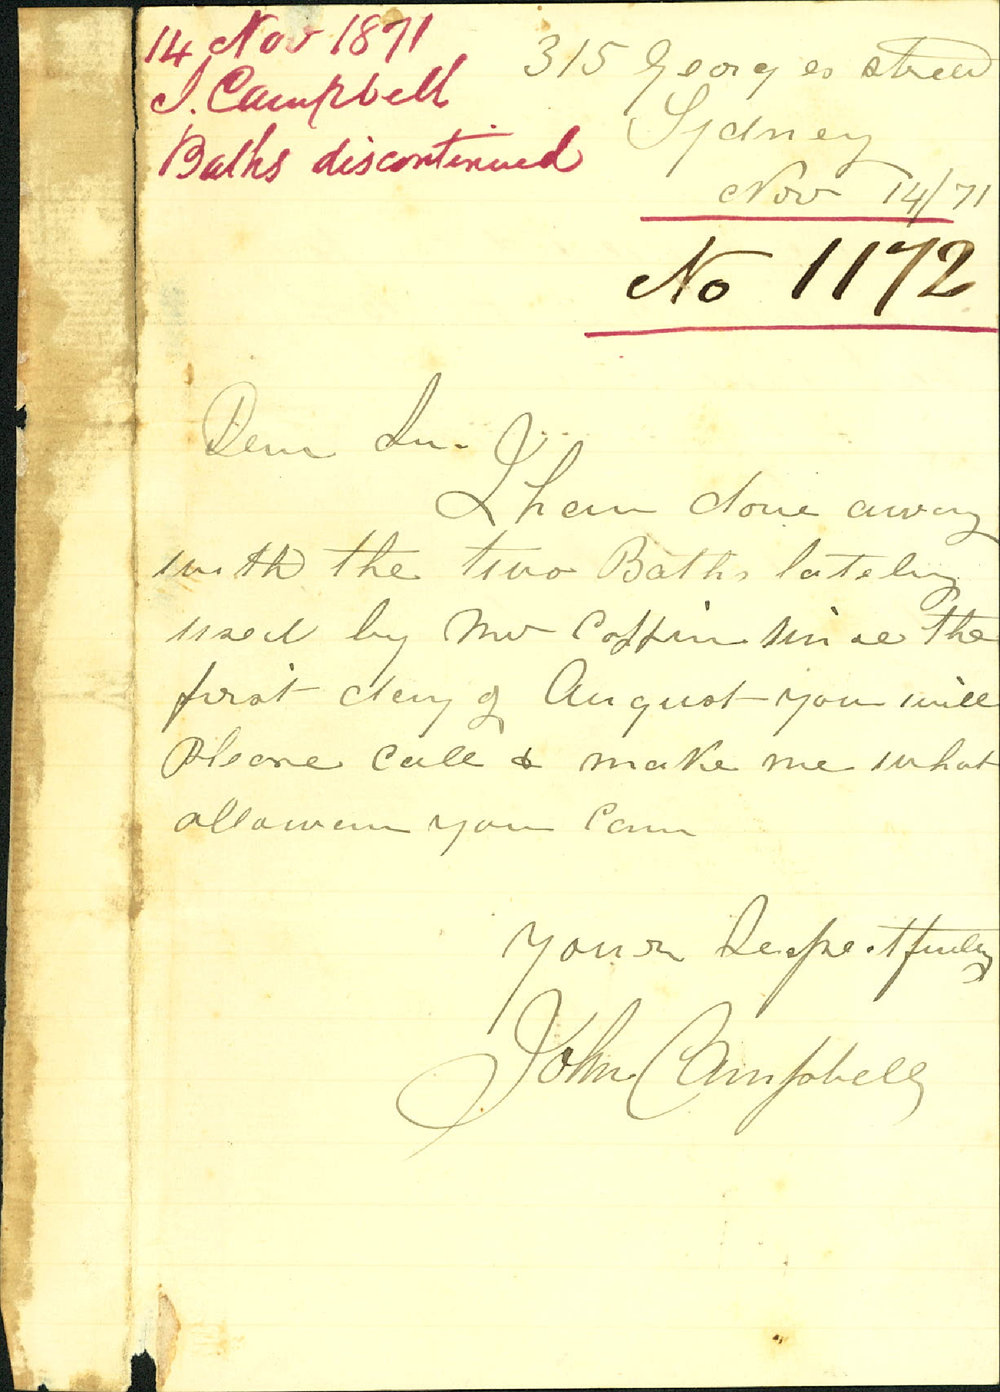 14 Nov 1871
J. Campbell
Baths discontinued
315 Georges street
Sydney
Nov 14/71
No 1172
Dear Sir
I have done away
with the two Baths lately
used by Mr Coffin since the
first day of August you will
please call & make me what
allowance you can
Yours Respectfully
John Campbell